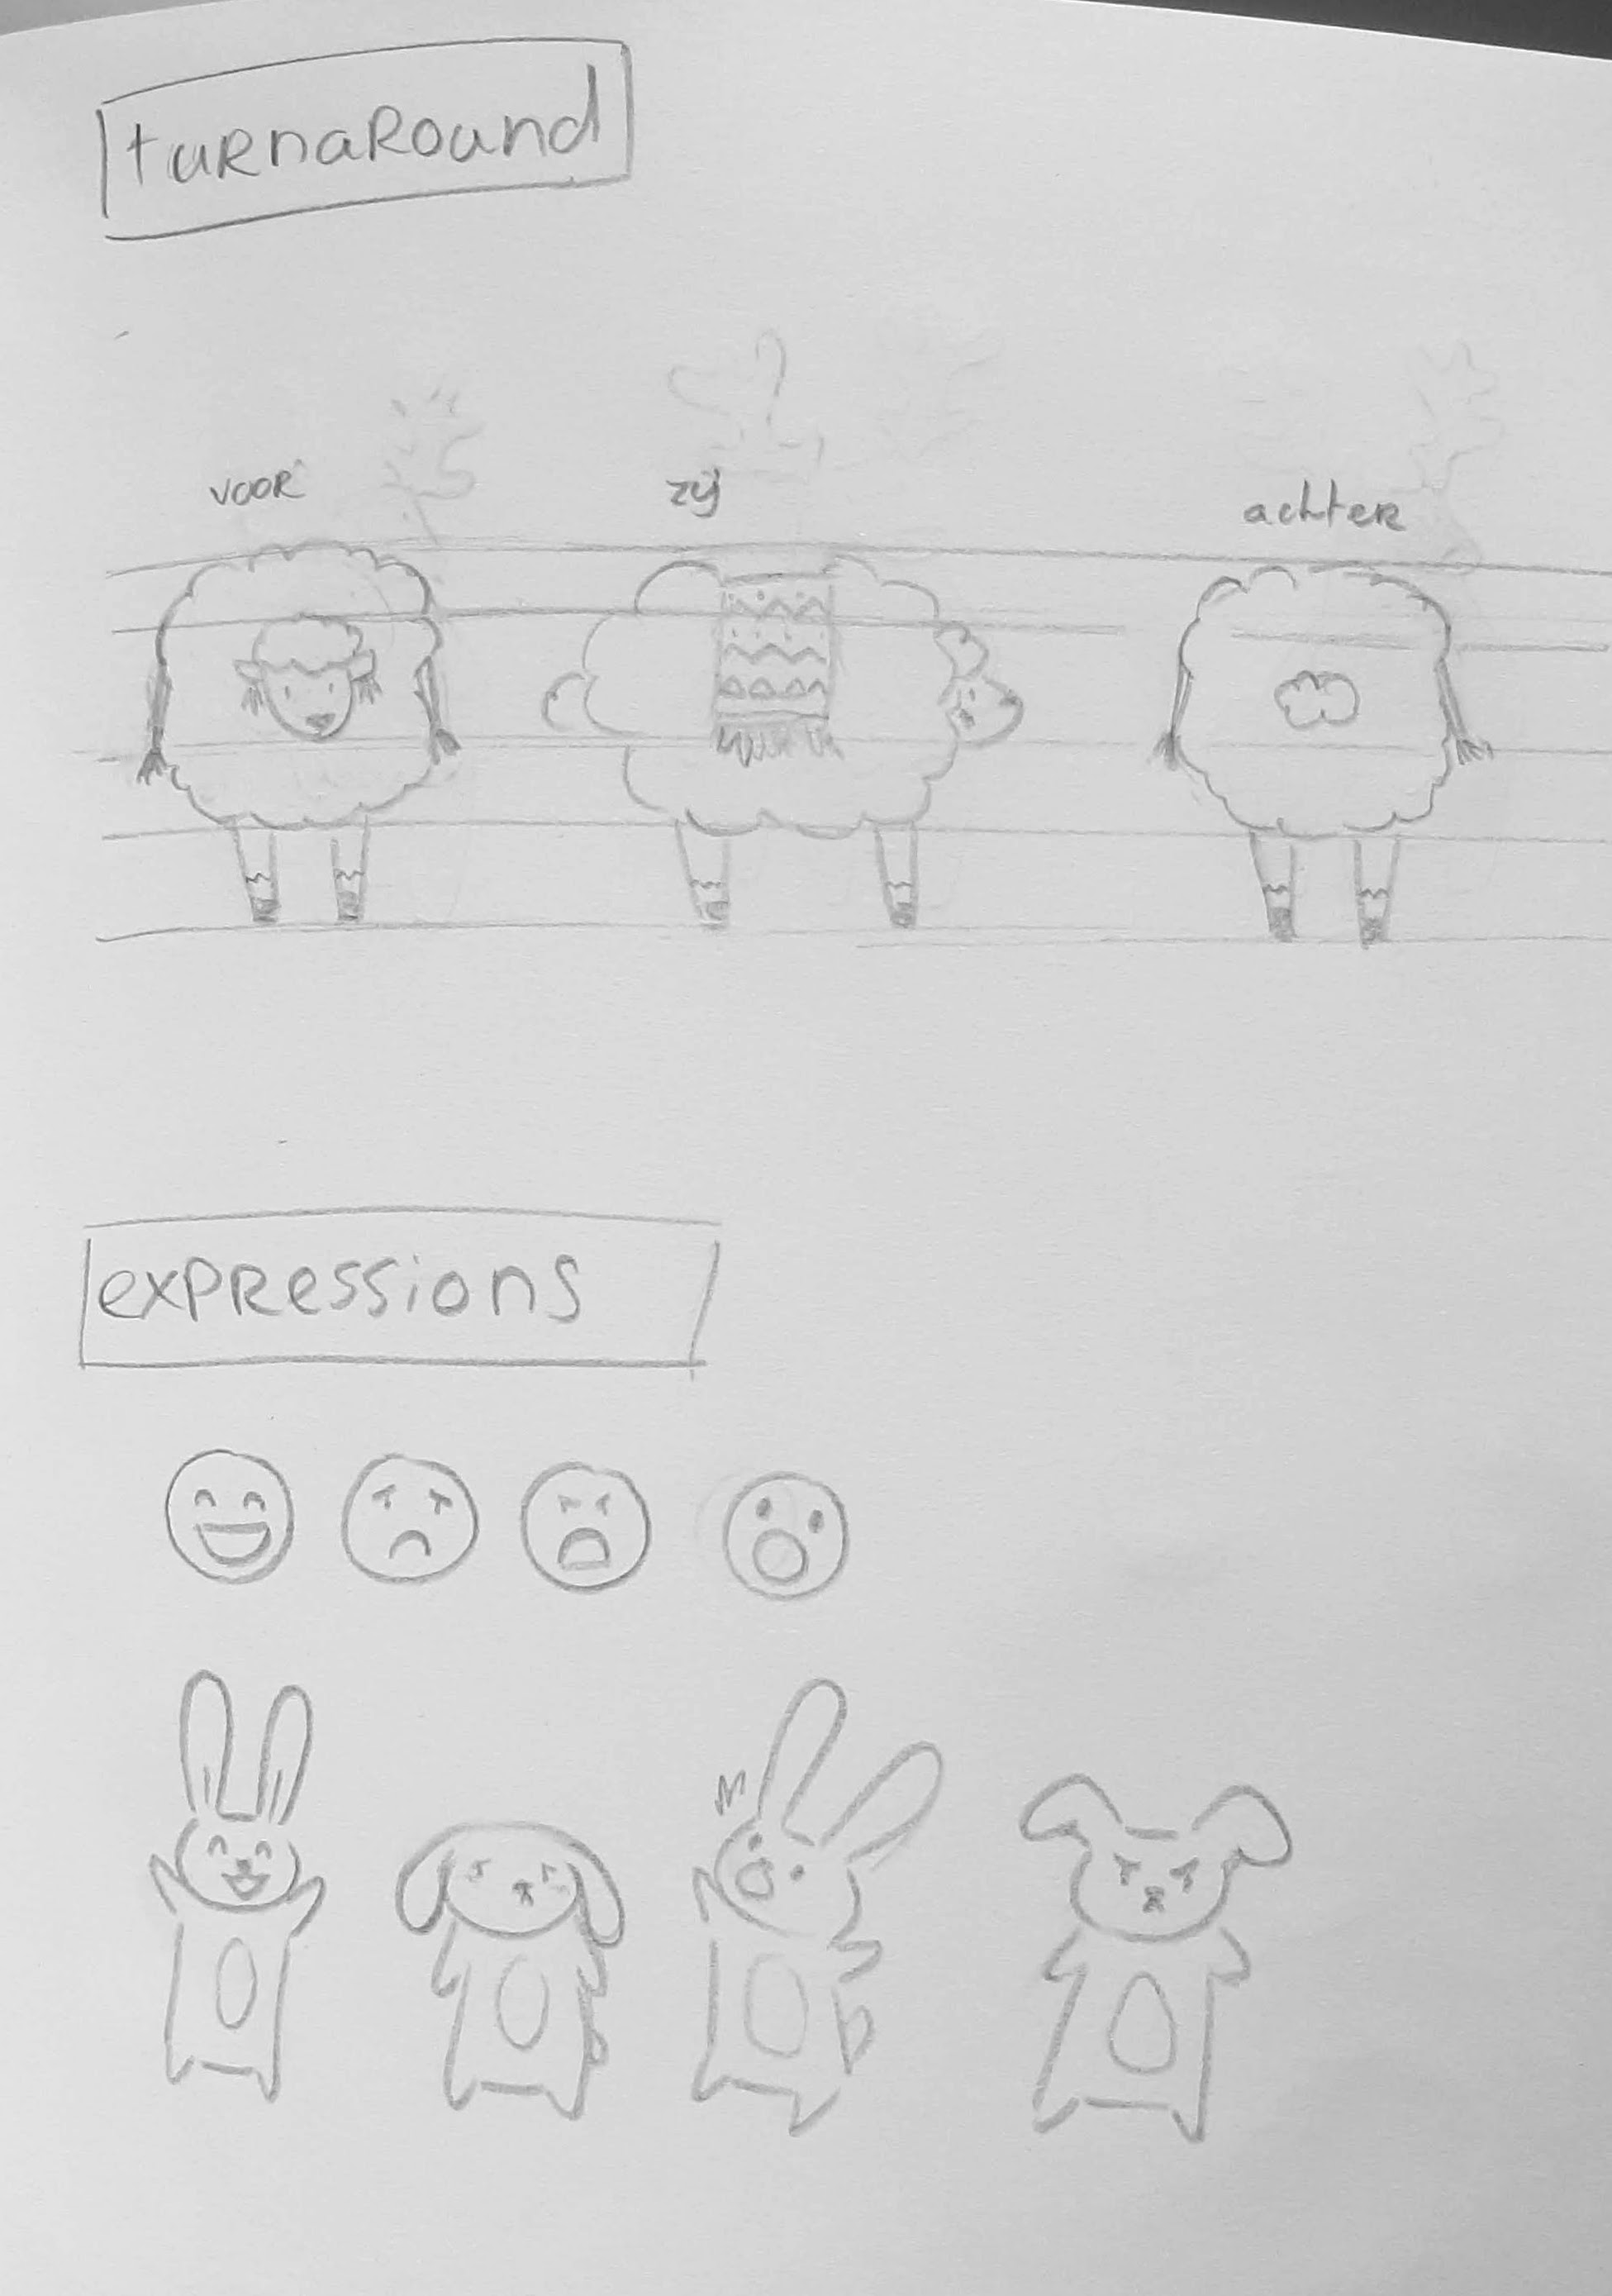 turnaround
voor zij achter
expressions